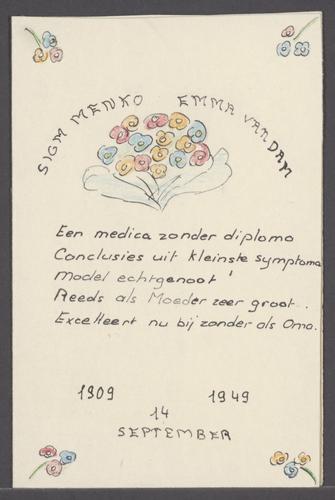 SIGM MENKO EMMA VAN DAM
Een medica zonder diploma
Conclusies uit kleinste symptoma
Model echtgenoot'
Reeds als Moeder zeer groot.
Excelleert nu bij zonder als Oma.
1909 1949
14
SEPTEMBER